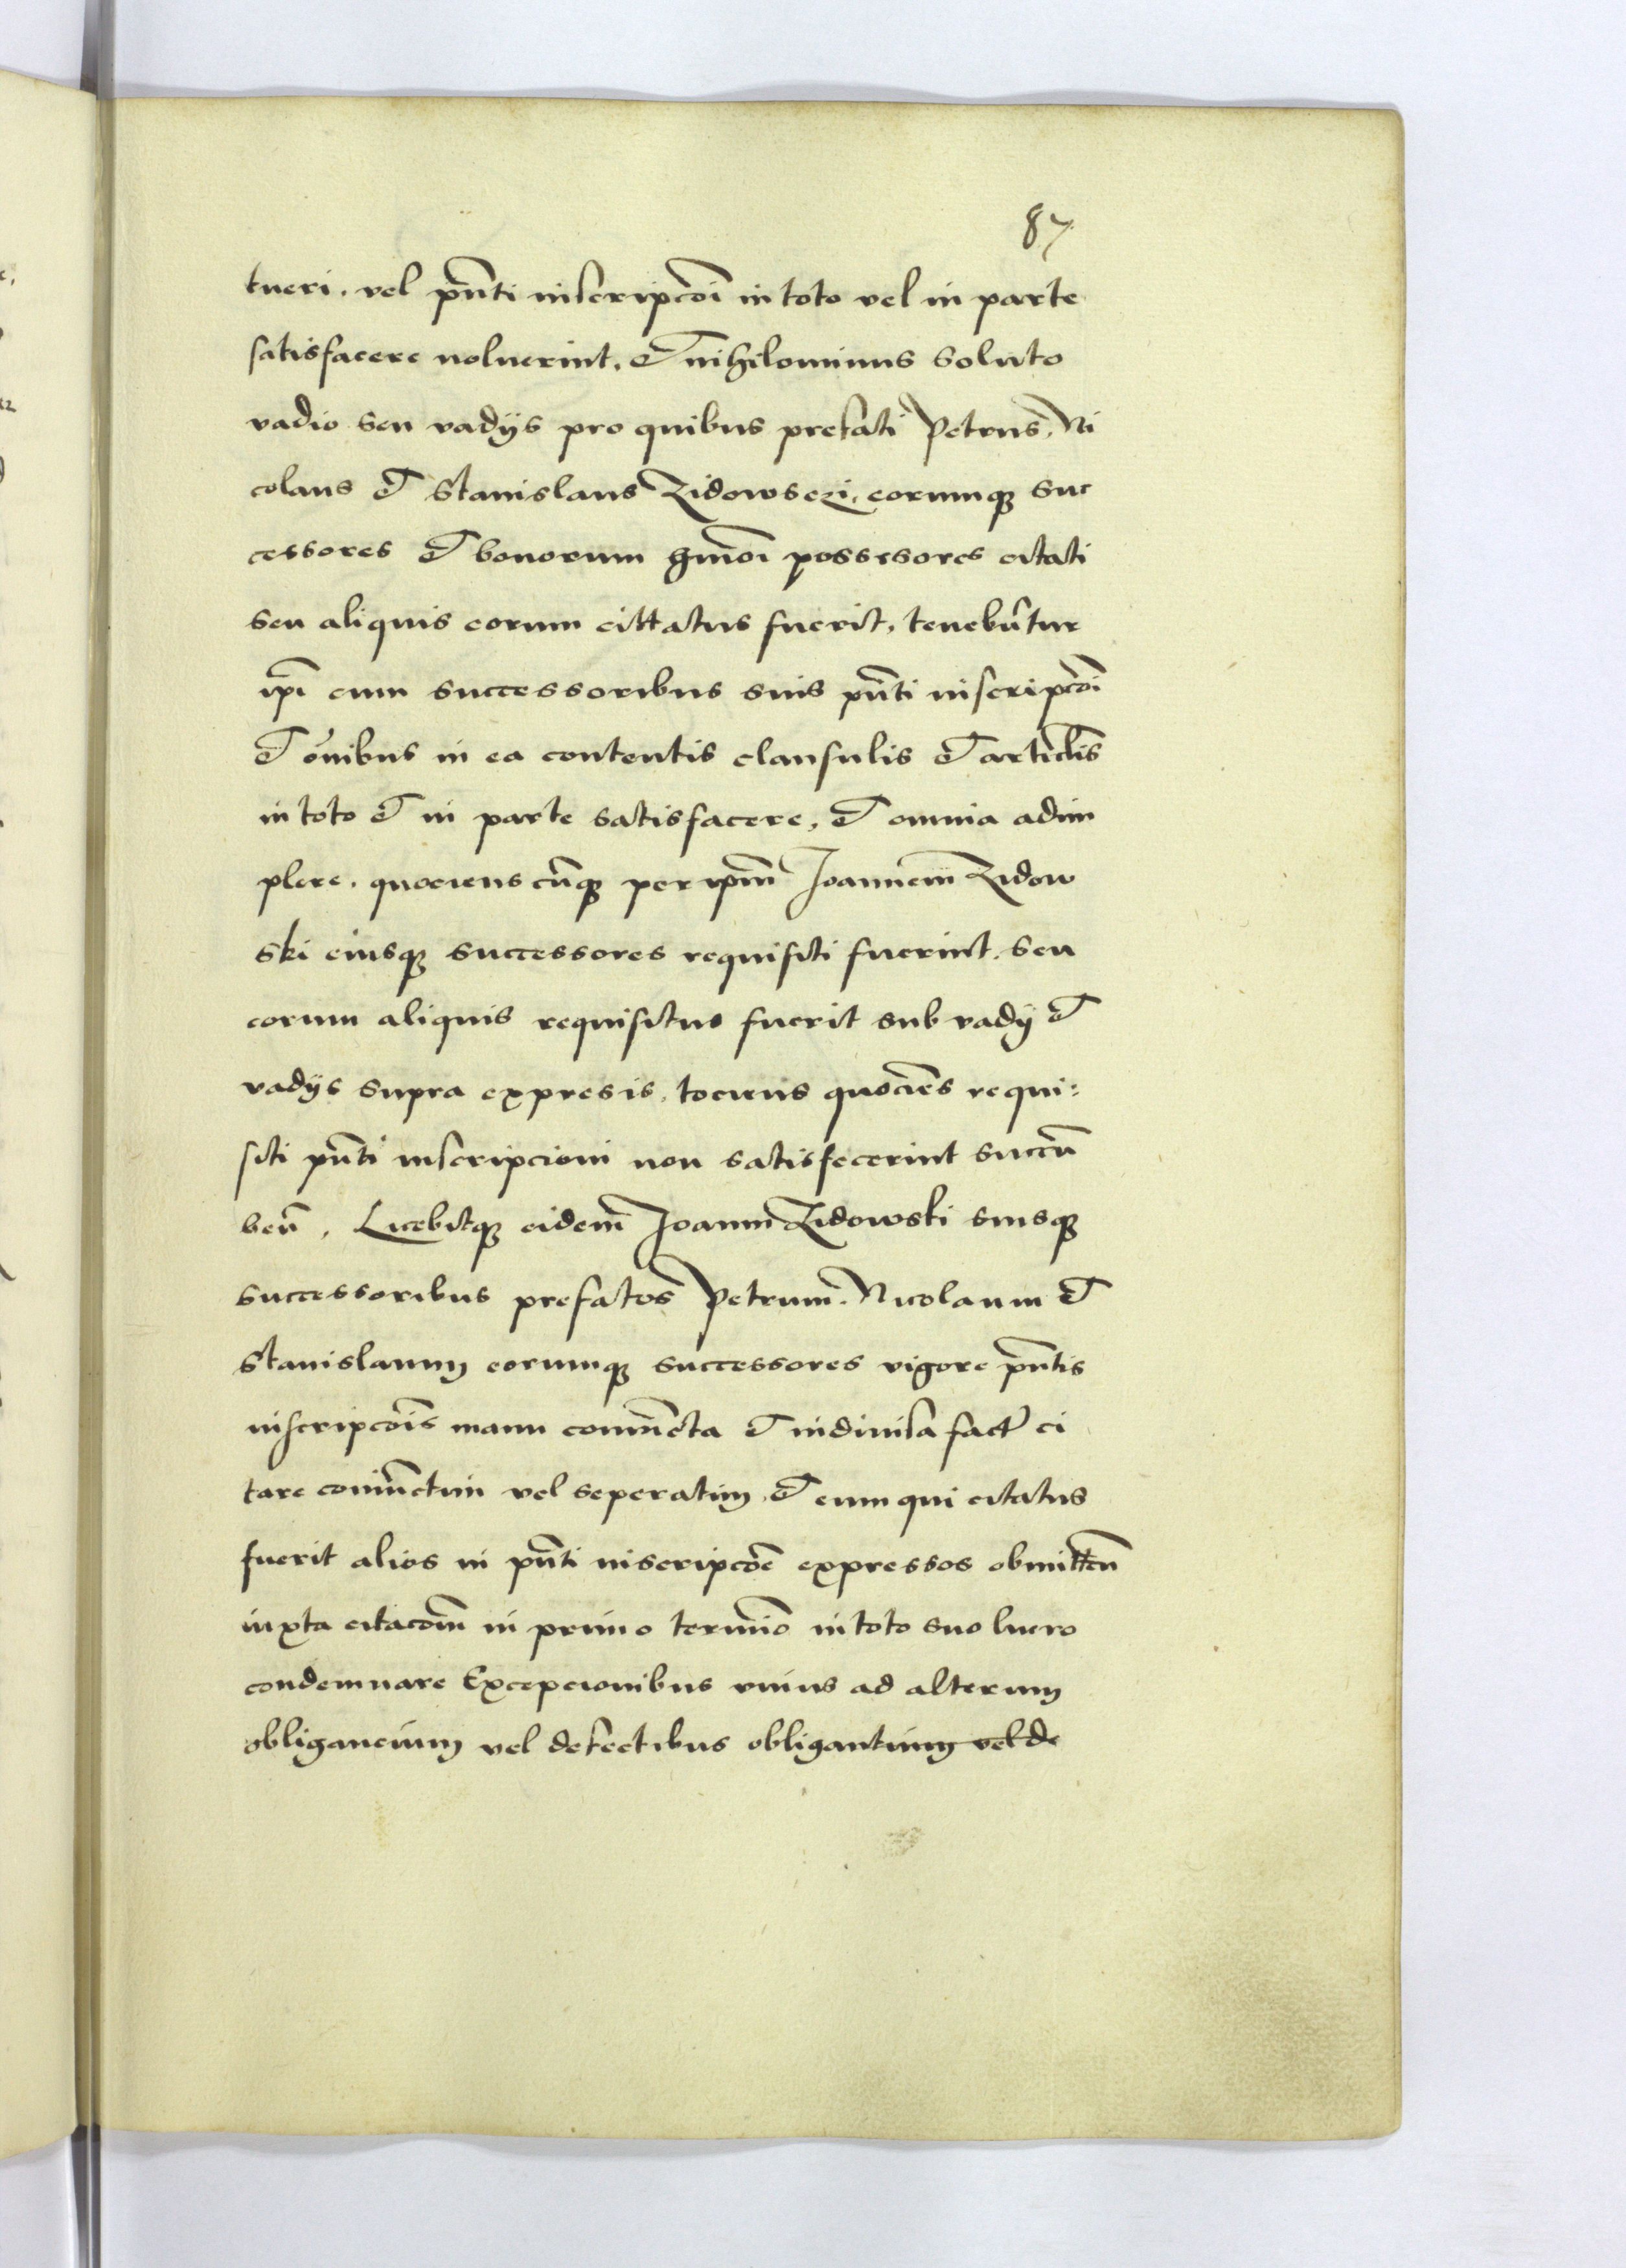 87
tueri. vel pn̄ti inscripcōi in toto vel in parte
satisfacere noluerint. et nihilominus soluto
vadio seu vadijs pro quibus prefati Petrus, Ni
colaus et Stanislaus Zidowsczi, eorumq suc
cessores et bonorum hm̄oi possessores citati
seu aliquis eorum cittatus fuerit, tenebūtur
ip̄i cum successoribus suis pn̄ti inscripcōi
et ōnibus in ea contentis clausulis et articlīs
in toto et in parte satisfacere, et omnia adim
plere. quociens cūq per ip̄m Joannem̄ Zidow
ski eiusq successores requisiti fuerint. seu
eorum aliquis requisitus fuerit sub vadij et
vadijs supra expresis, tociens quociēs requi:
siti pn̄ti inscripcioni non satisfecerint succū
ben̄. Licebitq eidem̄ Joanni Zidowski suisq
successoribus prefatos Petrum. Nicolaum et
Stanislaum eorumq successores vigore pn̄tis
inscripcōis manu coniūcta et indiuisa fact̄ ci
tare coniūctim vel seperatim, et eum qui citatus
fuerit alios in pn̄ti inscripcōe expressos obmitten̄
iuxta citacōm̄ in primo termīo in toto suo lucro
condemnare Excepcionibus vnius ad alterum
obligancium vel defectibus obligantium vel de